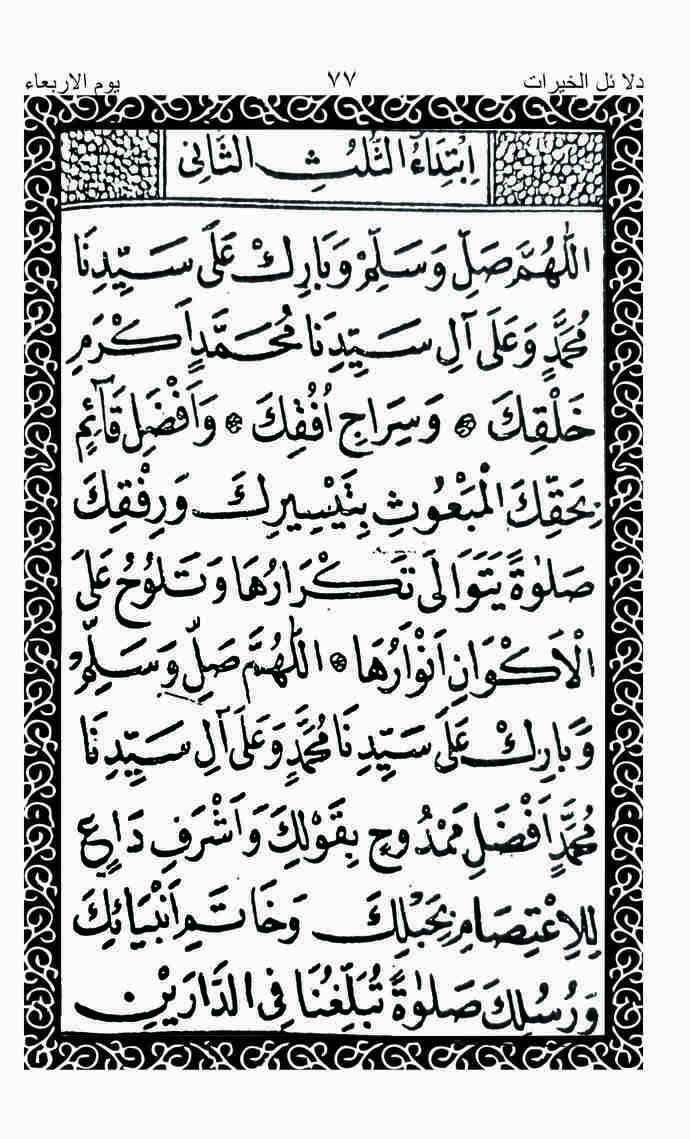 دلا ئل الخيرات ٧٧ يوم الاربعاء
اِبْتِدَاءُ الثُّلُثِ الثَّانِى
اَللّٰهُمَّ صَلِّ وَسَلِّمْ وَبَارِكْ عَلَى سَيِّدِنَا
مُحَمَّدٍ وَعَلَى آلِ سَيِّدِنَا مُحَمَّدٍ اَكْرَمِ
خَلْقِكَ ۞ وَسِرَاجِ اُفُقِكَ ۞ وَاَفْضَلِ قَآئِمٍ
بِحَقِّكَ الْمَبْعُوثِ بِتَيْسِيرِكَ وَرِفْقِكَ
صَلٰوةً يَتَوَالَى تَكْرَارُهَا وَتَلُوحُ عَلَى
الْاَكْوَانِ اَنْوَارُهَا ۞ اَللّٰهُمَّ صَلِّ وَسَلِّمْ
وَبَارِكْ عَلَى سَيِّدِنَا مُحَمَّدٍ وَعَلَى آلِ سَيِّدِنَا
مُحَمَّدٍ اَفْضَلِ مَمْدُوحٍ بِقَوْلِكَ وَاَشْرَفِ دَاعٍ
لِلِاعْتِصَامِ بِحَبْلِكَ وَخَاتَمِ اَنْبِيَائِكَ
وَرُسُلِكَ صَلٰوةً تُبَلِّغُنَا فِى الدَّارَيْنِ